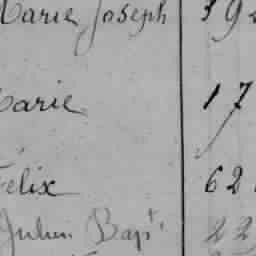 Marie Joseph 39
Marie 17
Felix 62
Julien Bapt. 22